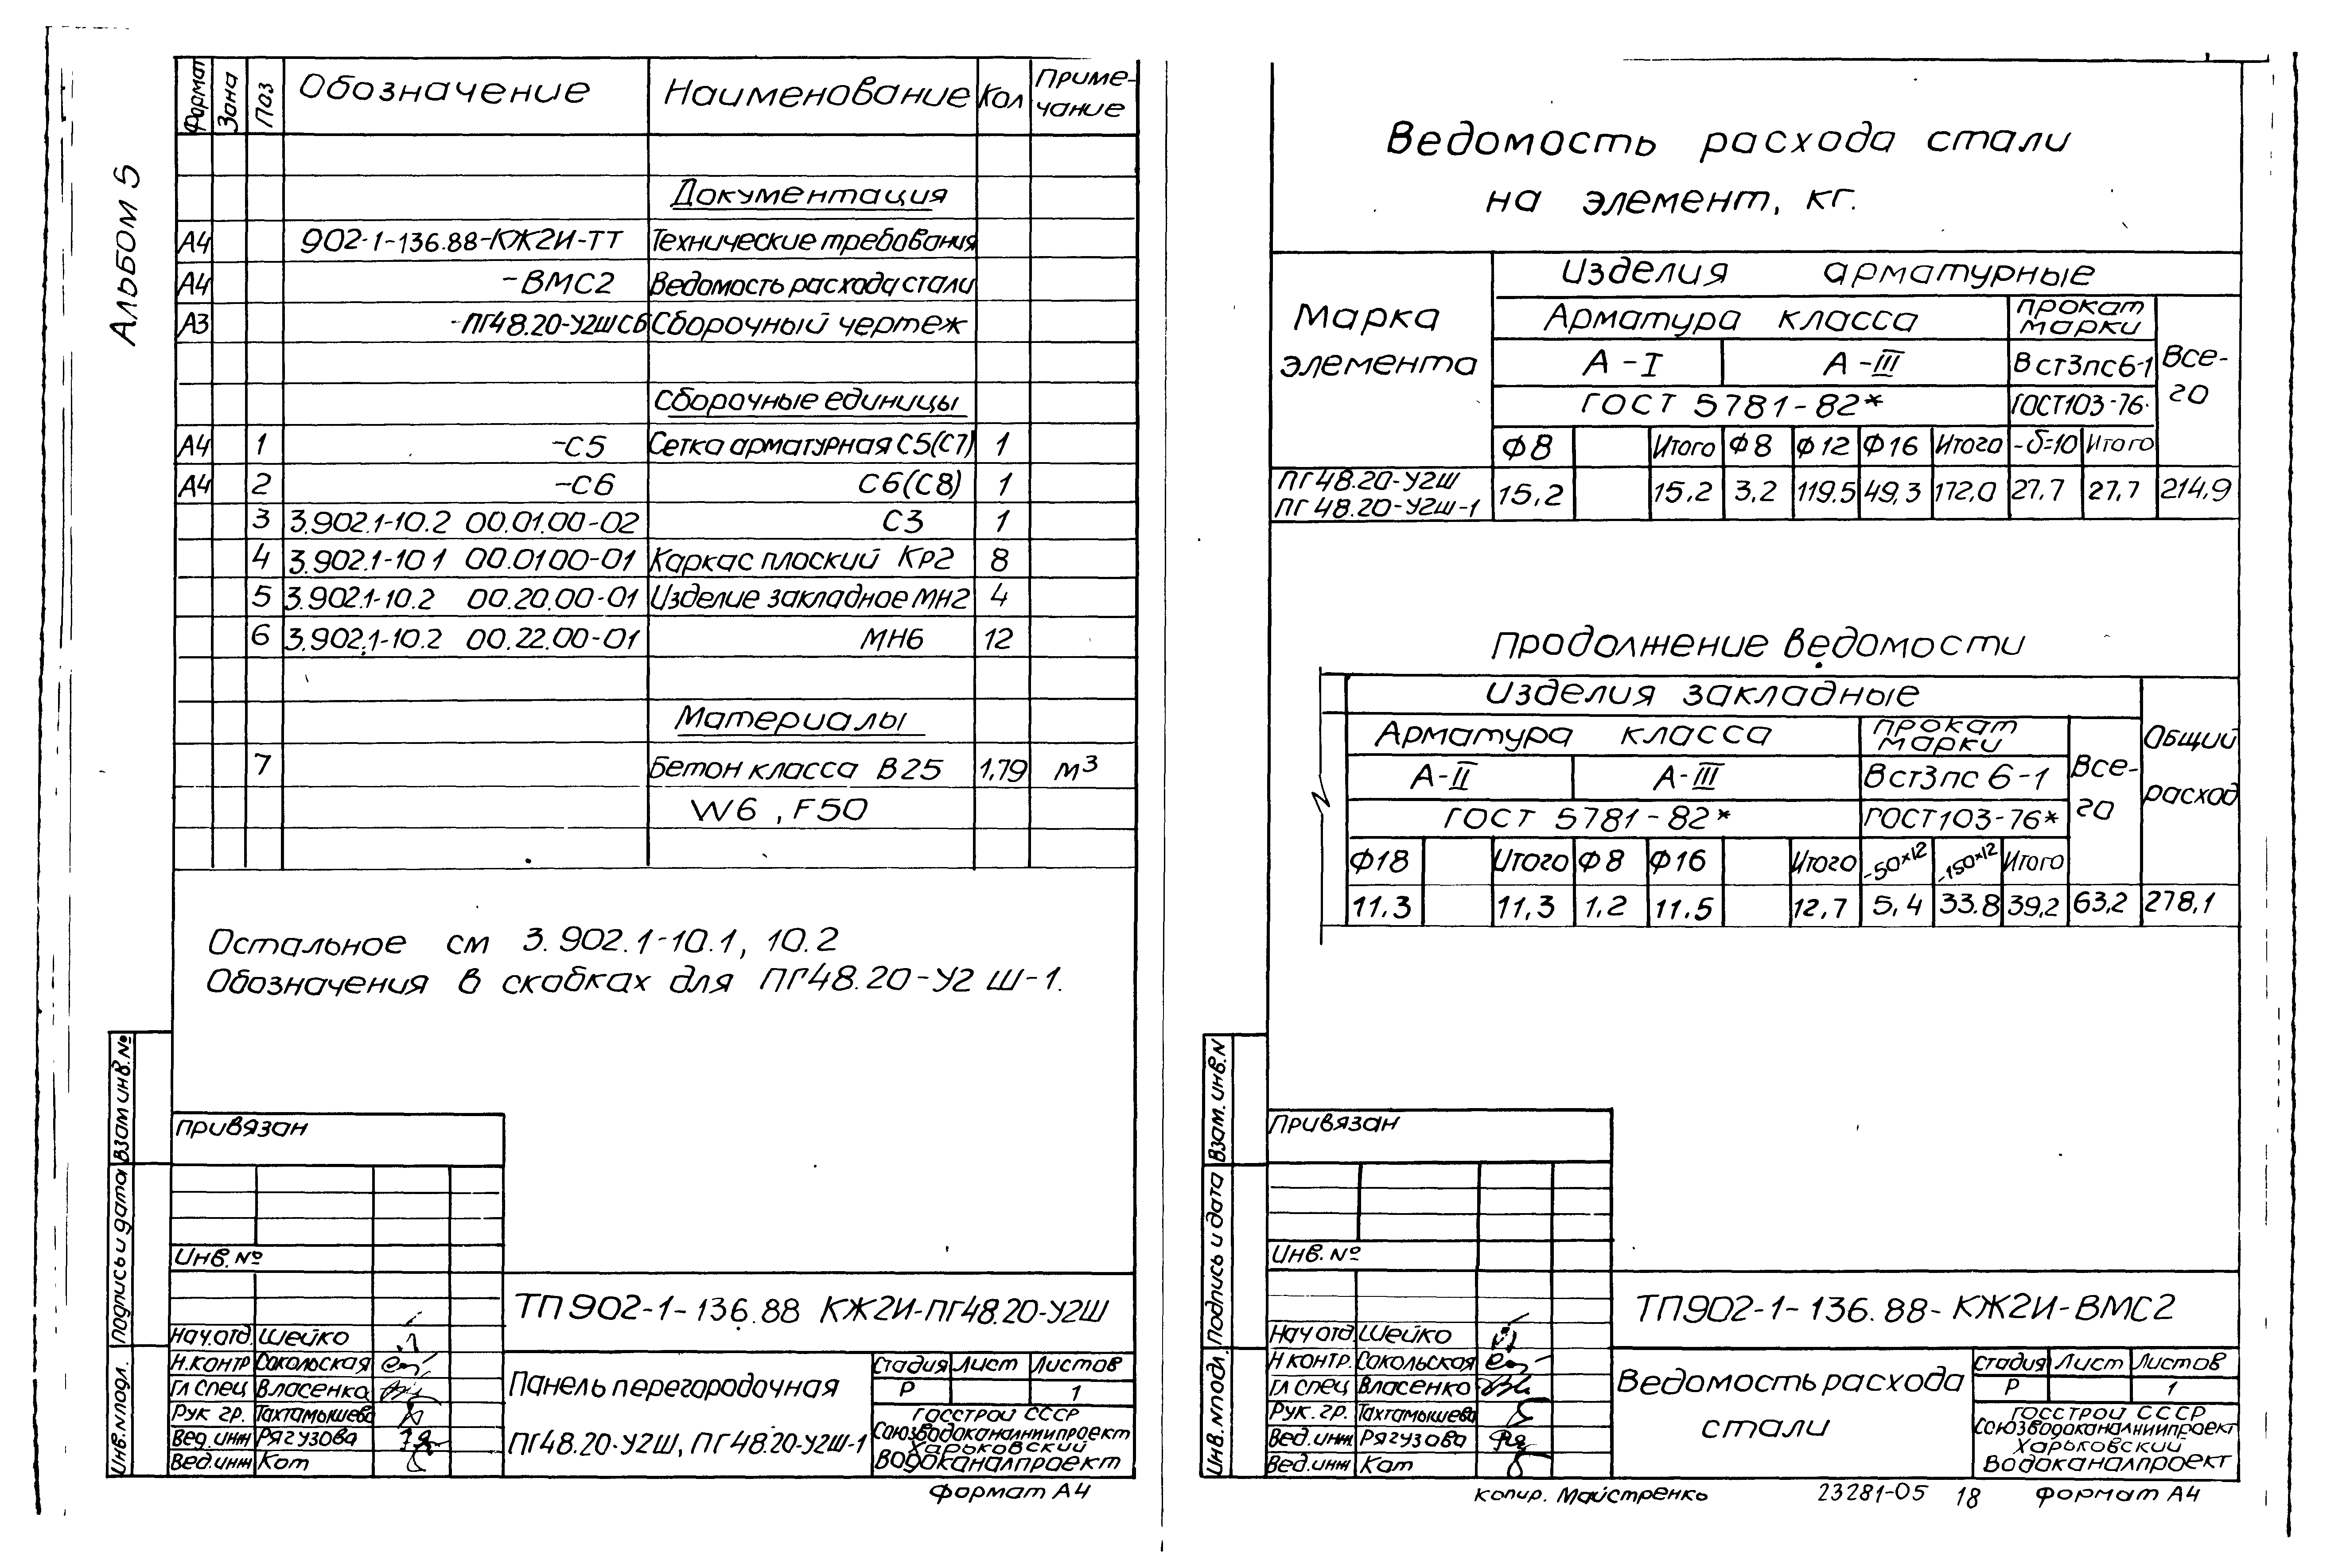 Альбом 5
Формат Зона Поз Обозначение Наименование Кол Приме-
чание
Документация
А4 902-1-136.88-КЖ2И-ТТ Технические требования
А4 -ВМС2 Ведомость расхода стали
А3 -ПГ48.20-У2ШСб Сборочный чертеж
Сборочные единицы
А4 1 -С5 Сетка арматурная С5(С7) 1
А4 2 -С6 С6(С8) 1
3 3.902.1-10.2 00.01.00-02 С3 1
4 3.902.1-10 1 00.0100-01 Каркас плоский Кр2 8
5 3.902.1-10.2 00.20.00-01 Изделие закладное МН2 4
6 3.902.1-10.2 00.22.00-01 МН6 12
Материалы
7 Бетон класса В25 1,79 м³
W6, F50
Остальное см 3.902.1-10.1, 10.2
Обозначения в скобках для ПГ48.20-У2Ш-1.
Взам инв.№
Подпись и дата
Инв.№подл.
Привязан
Инв. №
Нач.отд. Шейко
Н.контр Сокольская
Гл спец Власенко
Рук гр. Тахтамышева
Вед.инж Рягузова
Вед.инж Кот
ТП902-1-136.88 КЖ2И-ПГ48.20-У2Ш
Панель перегородочная
ПГ48.20-У2Ш, ПГ48.20-У2Ш-1
Стадия Лист Листов
Р 1
Госстрой СССР
Союзводоканалниипроект
Харьковский
Водоканалпроект
Формат А4
Ведомость расхода стали
на элемент, кг.
Марка
элемента
Изделия арматурные
Арматура класса
Прокат
марки
Все-
го
А-I А-III Вст3пс6-1
ГОСТ 5781-82* ГОСТ103-76.
Ф8 Итого Ф8 Ф12 Ф16 Итого -δ=10 Итого
ПГ48.20-У2Ш
ПГ48.20-У2Ш-1
15,2 15,2 3,2 119,5 49,3 172,0 27,7 27,7 214,9
Продолжение ведомости
Изделия закладные
Арматура класса
Прокат
марки
Все-
го
Общий
расход
А-II А-III Вст3пс 6-1
ГОСТ 5781-82* ГОСТ103-76*
Ф18 Итого Ф8 Ф16 Итого -50×12 -150×12 Итого
11,3 11,3 1,2 11,5 12,7 5,4 33.8 39,2 63,2 278,1
Взам.инв.N
Подпись и дата
Инв.Nподл.
Привязан
Инв. №
Нач отд. Шейко
Н контр. Сокольская
Гл спец Власенко
Рук. гр. Тахтамышева
Вед.инж Рягузова
Вед.инж Кот
ТП902-1-136.88-КЖ2И-ВМС2
Ведомость расхода
стали
Стадия Лист Листов
Р 1
Госстрой СССР
Союзводоканалниипроект
Харьковский
Водоканалпроект
Копир. Майстренко 23281-05 18 Формат А4